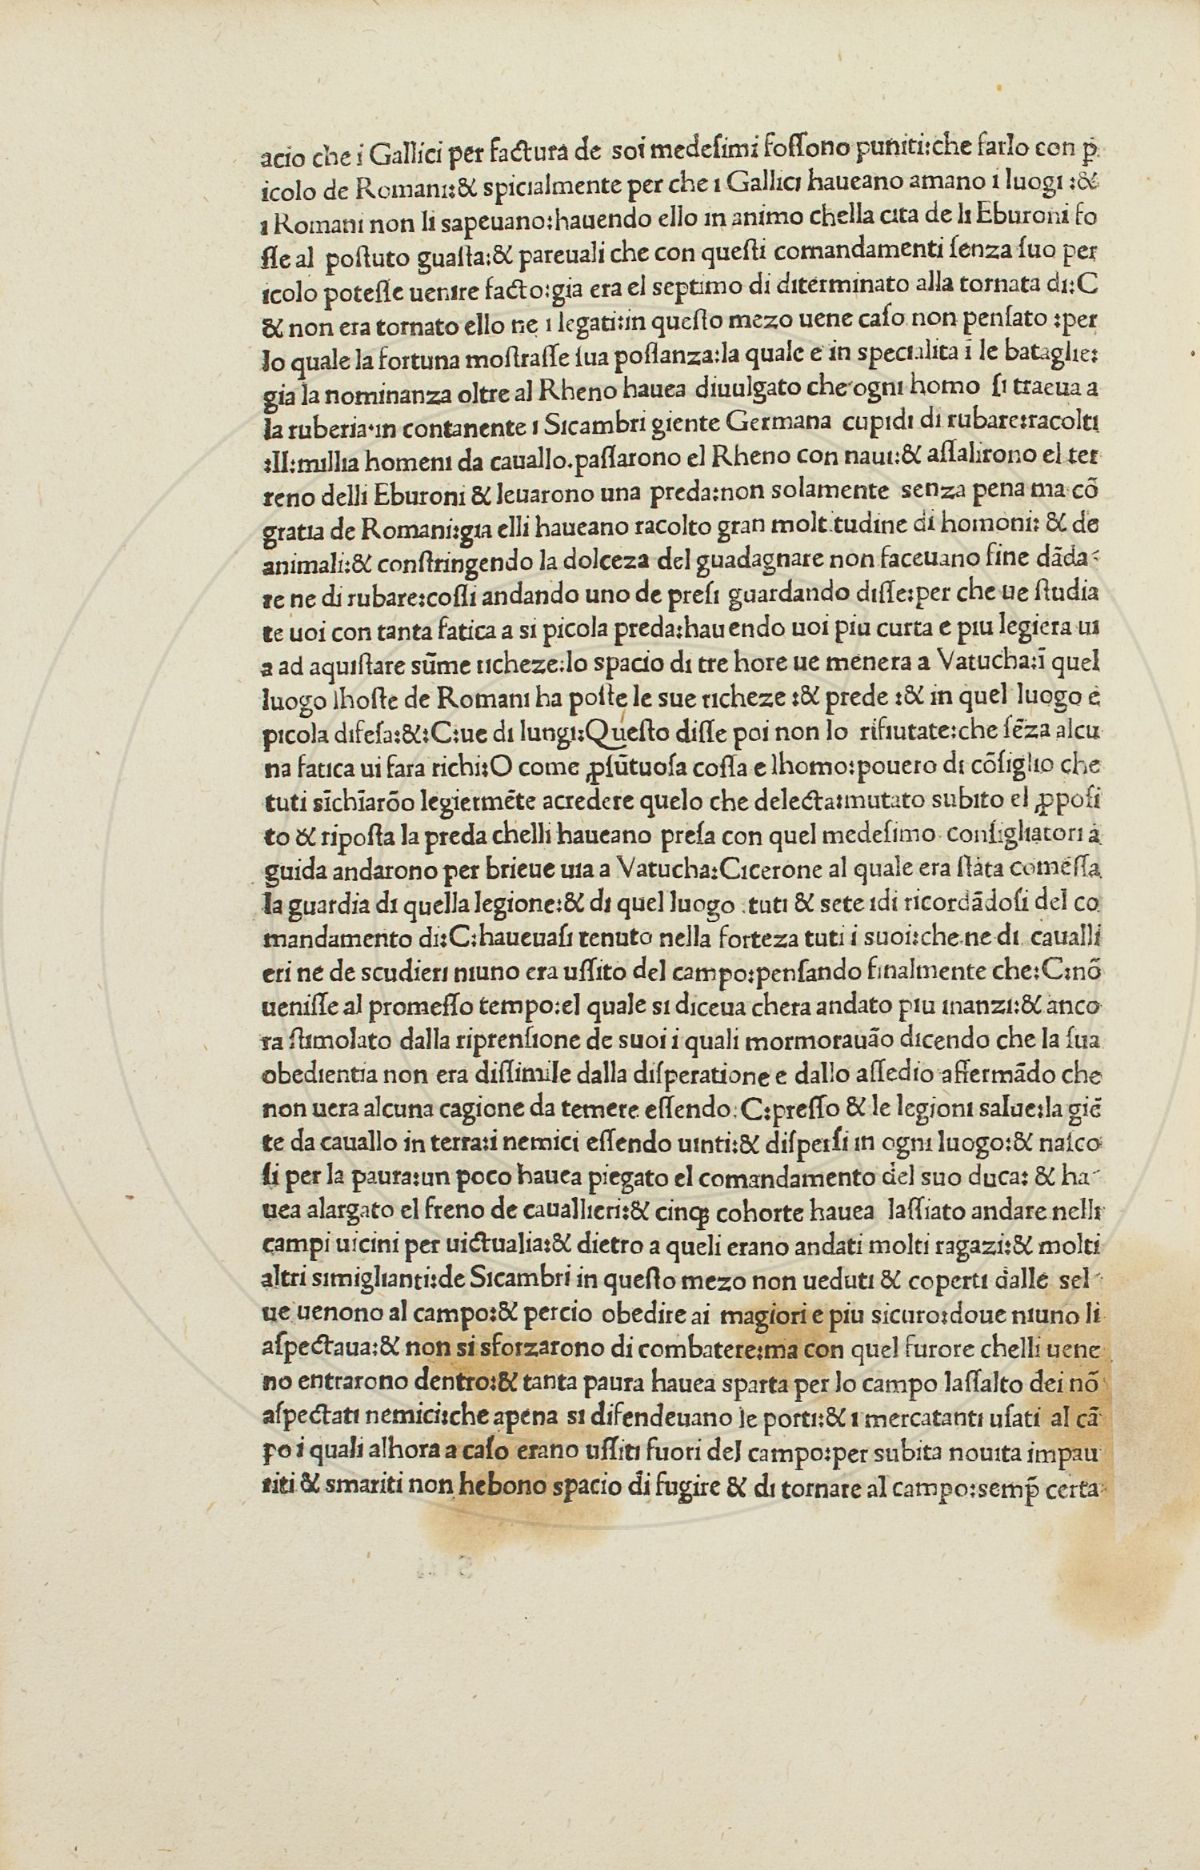 acio che i Gallici per factura de soi medeſimi foſſono puniti:che farlo con p̱
icolo de Romani:& spicialmente per che i Gallici haueano amano i luogi :&
i Romani non li sapeuano:hauendo ello in animo chella cita de li Eburoni fo
ſſe al poſtuto guaſta:& pareuali che con queſti comandamenti ſenza ſuo per
icolo poteſſe uenire facto:gia era el septimo di diterminato alla tornata di:C
& non era tornato ello ne i legati:in queſto mezo uene caſo non penſato :per
lo quale la fortuna moſtraſſe ſua poſſanza:la quale e in specialita ī le bataglie:
gia la nominanza oltre al Rheno hauea diuulgato che ogni homo ſi traeua a
la ruberia·in contanente i Sicambri giente Germana cupidi di rubare:racolti
:II:millia homeni da cauallo.paſſarono el Rheno con naui:& aſſalirono el ter
reno delli Eburoni & leuarono una preda:non solamente senza pena ma cō
gratia de Romani:gia elli haueano racolto gran molt tudine di homoni: & de
animali:& conſtringendo la dolceza del guadagnare non faceuano fine dāda-
re ne di rubare:coſſi andando uno de preſi guardando diſſe:per che ue ſtudia
te uoi con tanta fatica a si picola preda:hauendo uoi piu curta e piu legiera ui
a ad aquiſtare sūme richeze:lo spacio di tre hore ue menera a Vatucha:ī quel
luogo lhoſte de Romani ha poſte le sue richeze :& prede :& in quel luogo e
picola difeſa:&:C:ue di lungi:Queſto diſſe poi non lo rifiutate:che ſēza alcu
na fatica ui fara richi:O come ꝓſūtuoſa coſſa e lhomo:pouero di cōſiglio che
tuti sīchīarōo legiermēte acredere quelo che delecta:mutato subito el ꝓpoſi
to & ripoſta la preda chelli haueano preſa con quel medeſimo conſigliatori a
guida andarono per brieue uia a Vatucha:Cicerone al quale era ſtata comeſſa
la guardia di quella legione:& di quel luogo tuti & sete idi ricordādoſi del co
mandamento di:C:haueuaſi tenuto nella forteza tuti i suoi:che ne di caualli
eri ne de scudieri niuno era uſſito del campo:penſando finalmente che:C:nō
ueniſſe al promeſſo tempo:el quale si diceua chera andato piu inanzi:& anco
ra ſtimolato dalla riprenſione de suoi i quali mormorauāo dicendo che la ſua
obedientia non era diſſimile dalla diſperatione e dallo aſſedio affermādo che
non uera alcuna cagione da temere eſſendo C:preſſo & le legioni salue:la giē
te da cauallo in terra:i nemici eſſendo uinti:& diſperſi in ogni luogo:& naſco
ſi per la paura:un poco hauea piegato el comandamento del suo duca: & ha-
uea alargato el freno de cauallieri:& cinqꝫ cohorte hauea laſſiato andare nelli
campi uicini per uictualia:& dietro a queli erano andati molti ragazi:& molti
altri simiglianti:de Sicambri in queſto mezo non ueduti & coperti dalle sel-
ue uenono al campo:& percio obedire ai magiori e piu sicuro:doue niuno li
aſpectaua:& non si sforzarono di combatere:ma con quel furore chelli uene
no entrarono dentro:& tanta paura hauea sparta per lo campo laſſalto dei nō
aſpectati nemici:che apena si difendeuano le porti:& i mercatanti uſati al cā
po i quali alhora a caſo erano uſſiti fuori del campo:per subita nouita impau
riti & smariti non hebono spacio di fugire & di tornare al campo:semp̱ certa